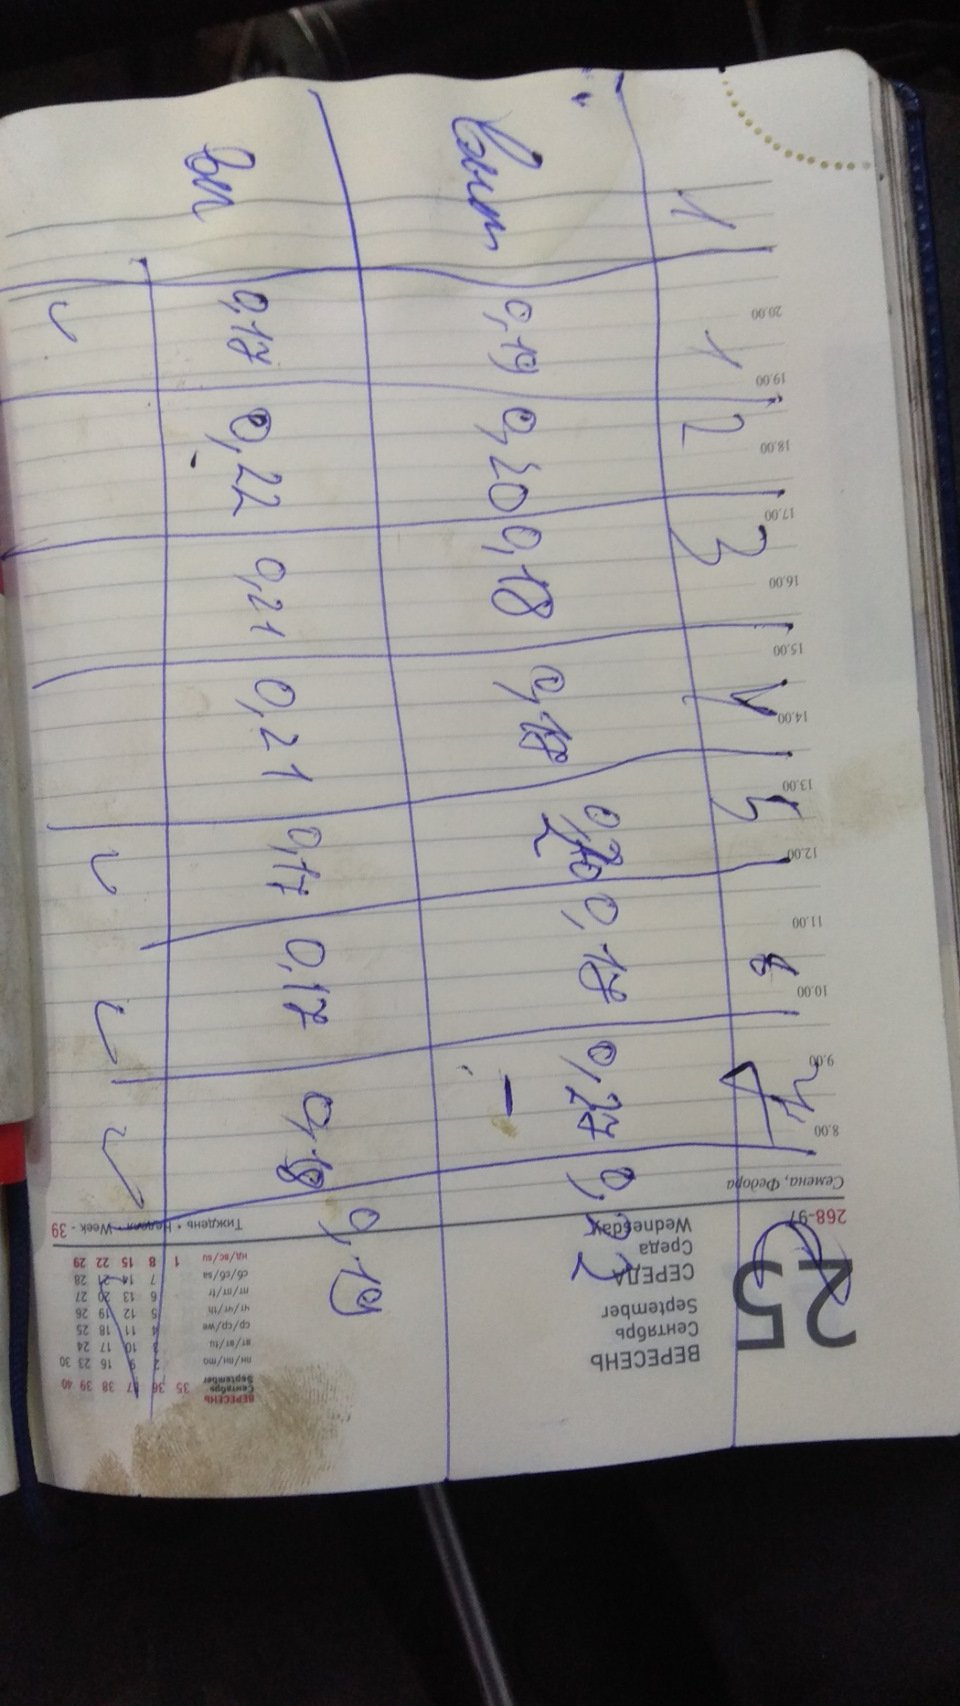 1 1 2 3 4 5 6 7 8
Вып 0,19 0,20 0,18 0,18 0,20 2 0,18 0,27 0,2
вп 0,17 0,22 0,21 0,21 0,17 0,17 0,18 0,19
25
268-97
Семена, Федора
8.00
9.00
10.00
11.00
12.00
13.00
14.00
15.00
16.00
17.00
18.00
19.00
20.00
ВЕРЕСЕНЬ
Сентябрь
September
СЕРЕДА
Среда
Wednesday
Тиждень • Неделя • Week - 39
ВЕРЕСЕНЬ
Сентябрь
September
35 36 37 38 39 40
пн/пн/mo 2 9 16 23 30
вт/вт/tu 3 10 17 24
ср/ср/we 4 11 18 25
чт/чт/th 5 12 19 26
пт/пт/fr 6 13 20 27
сб/сб/sa 7 14 21 28
нд/вс/su 1 8 15 22 29